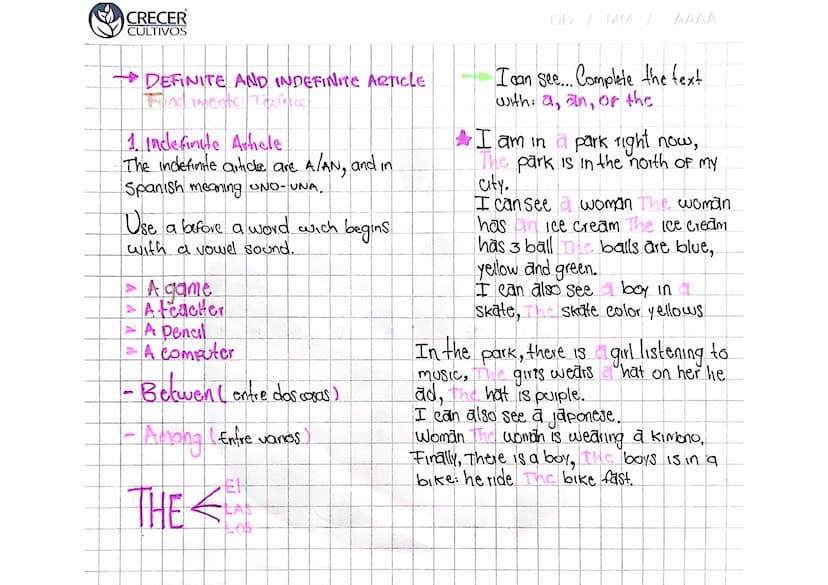 CRECER
CULTIVOS
DD / MM / AAAA
DEFINITE AND INDEFINITE ARTICLE
1. Indefinite Article
The indefinite article are A/AN, and in
Spanish meaning UNO-UNA.
Use a before a word wich begins
with a vowel sound.
A game
A teacher
A pencil
A computer
- Betwen (entre dos cosas)
- Among (Entre varios)
THE
El
LAS
Los
I can see... Complete the text
with: a, an, or the
I am in a park right now,
The park is in the north of my
city.
I can see a woman The woman
has an ice cream The ice cream
has 3 ball The balls are blue,
yellow and green.
I can also see a boy in a
skate, The skate color yellows
In the park, there is a girl listening to
music, The girls wears a hat on her he
ad, The hat is purple.
I can also see a japonese.
Woman The woman is wearing a kimono,
Finally, There is a boy, The boys is in a
bike: he ride The bike fast.